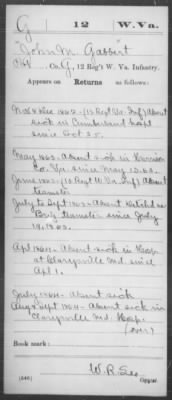 G 12 W.Va.
John W. Gabbert
Co. G, 12 Reg't W. Va. Infantry.
Appears on Returns as follows:
Nov & Dec 1862 - (12 Regt W. Va. Inf) Absent
sick in Cumberland hospl
since Oct 25.
May 1863 - Absent sick in Harrison
Co. Va. since May 13.63.
June 1863 - (12 Regt W. Va. Inf) Absent
teamster
July to Sept 1863 - Absent Detchd as
Brig teamster since July
14, 1863.
Apl 1864 - Absent sick in Hosp.
at Clarysville Md. since
Apl 1.
July 1864 - Absent sick
Aug & Sept 1864 - Absent sick in
Clarysville Md. Hosp.
(over)
Book mark:
(546)
Copyist.